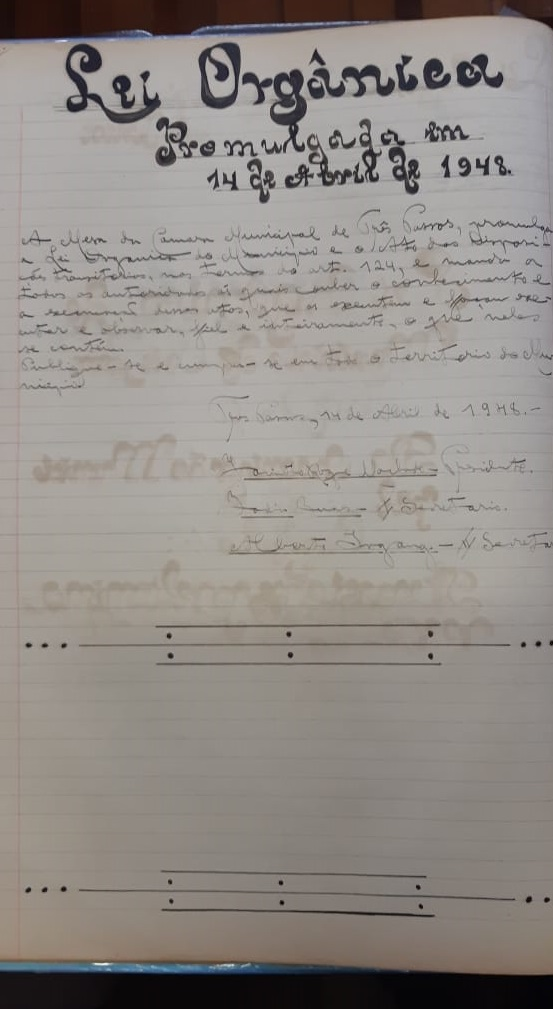 Lei Orgânica
Promulgada em
14 de Abril de 1948.
A Mesa da Camara Municipal de Três Passos, promulga
a Lei Organica do Municipio e o Ato das Disposi-
ções transitorias, nos termos do art. 124, e manda a
todos as autoridades ás quais couber o conhecimento e
a execução desses atos, que os executem e façam exe-
cutar e observar, fiel e inteiramente, o que neles
se contém.
Publique-se e cumpra-se em todo o territorio do Mu-
nicipio
Três Passos, 14 de Abril de 1948.-
Presidente.
Secretario.
Alberto - Secreta